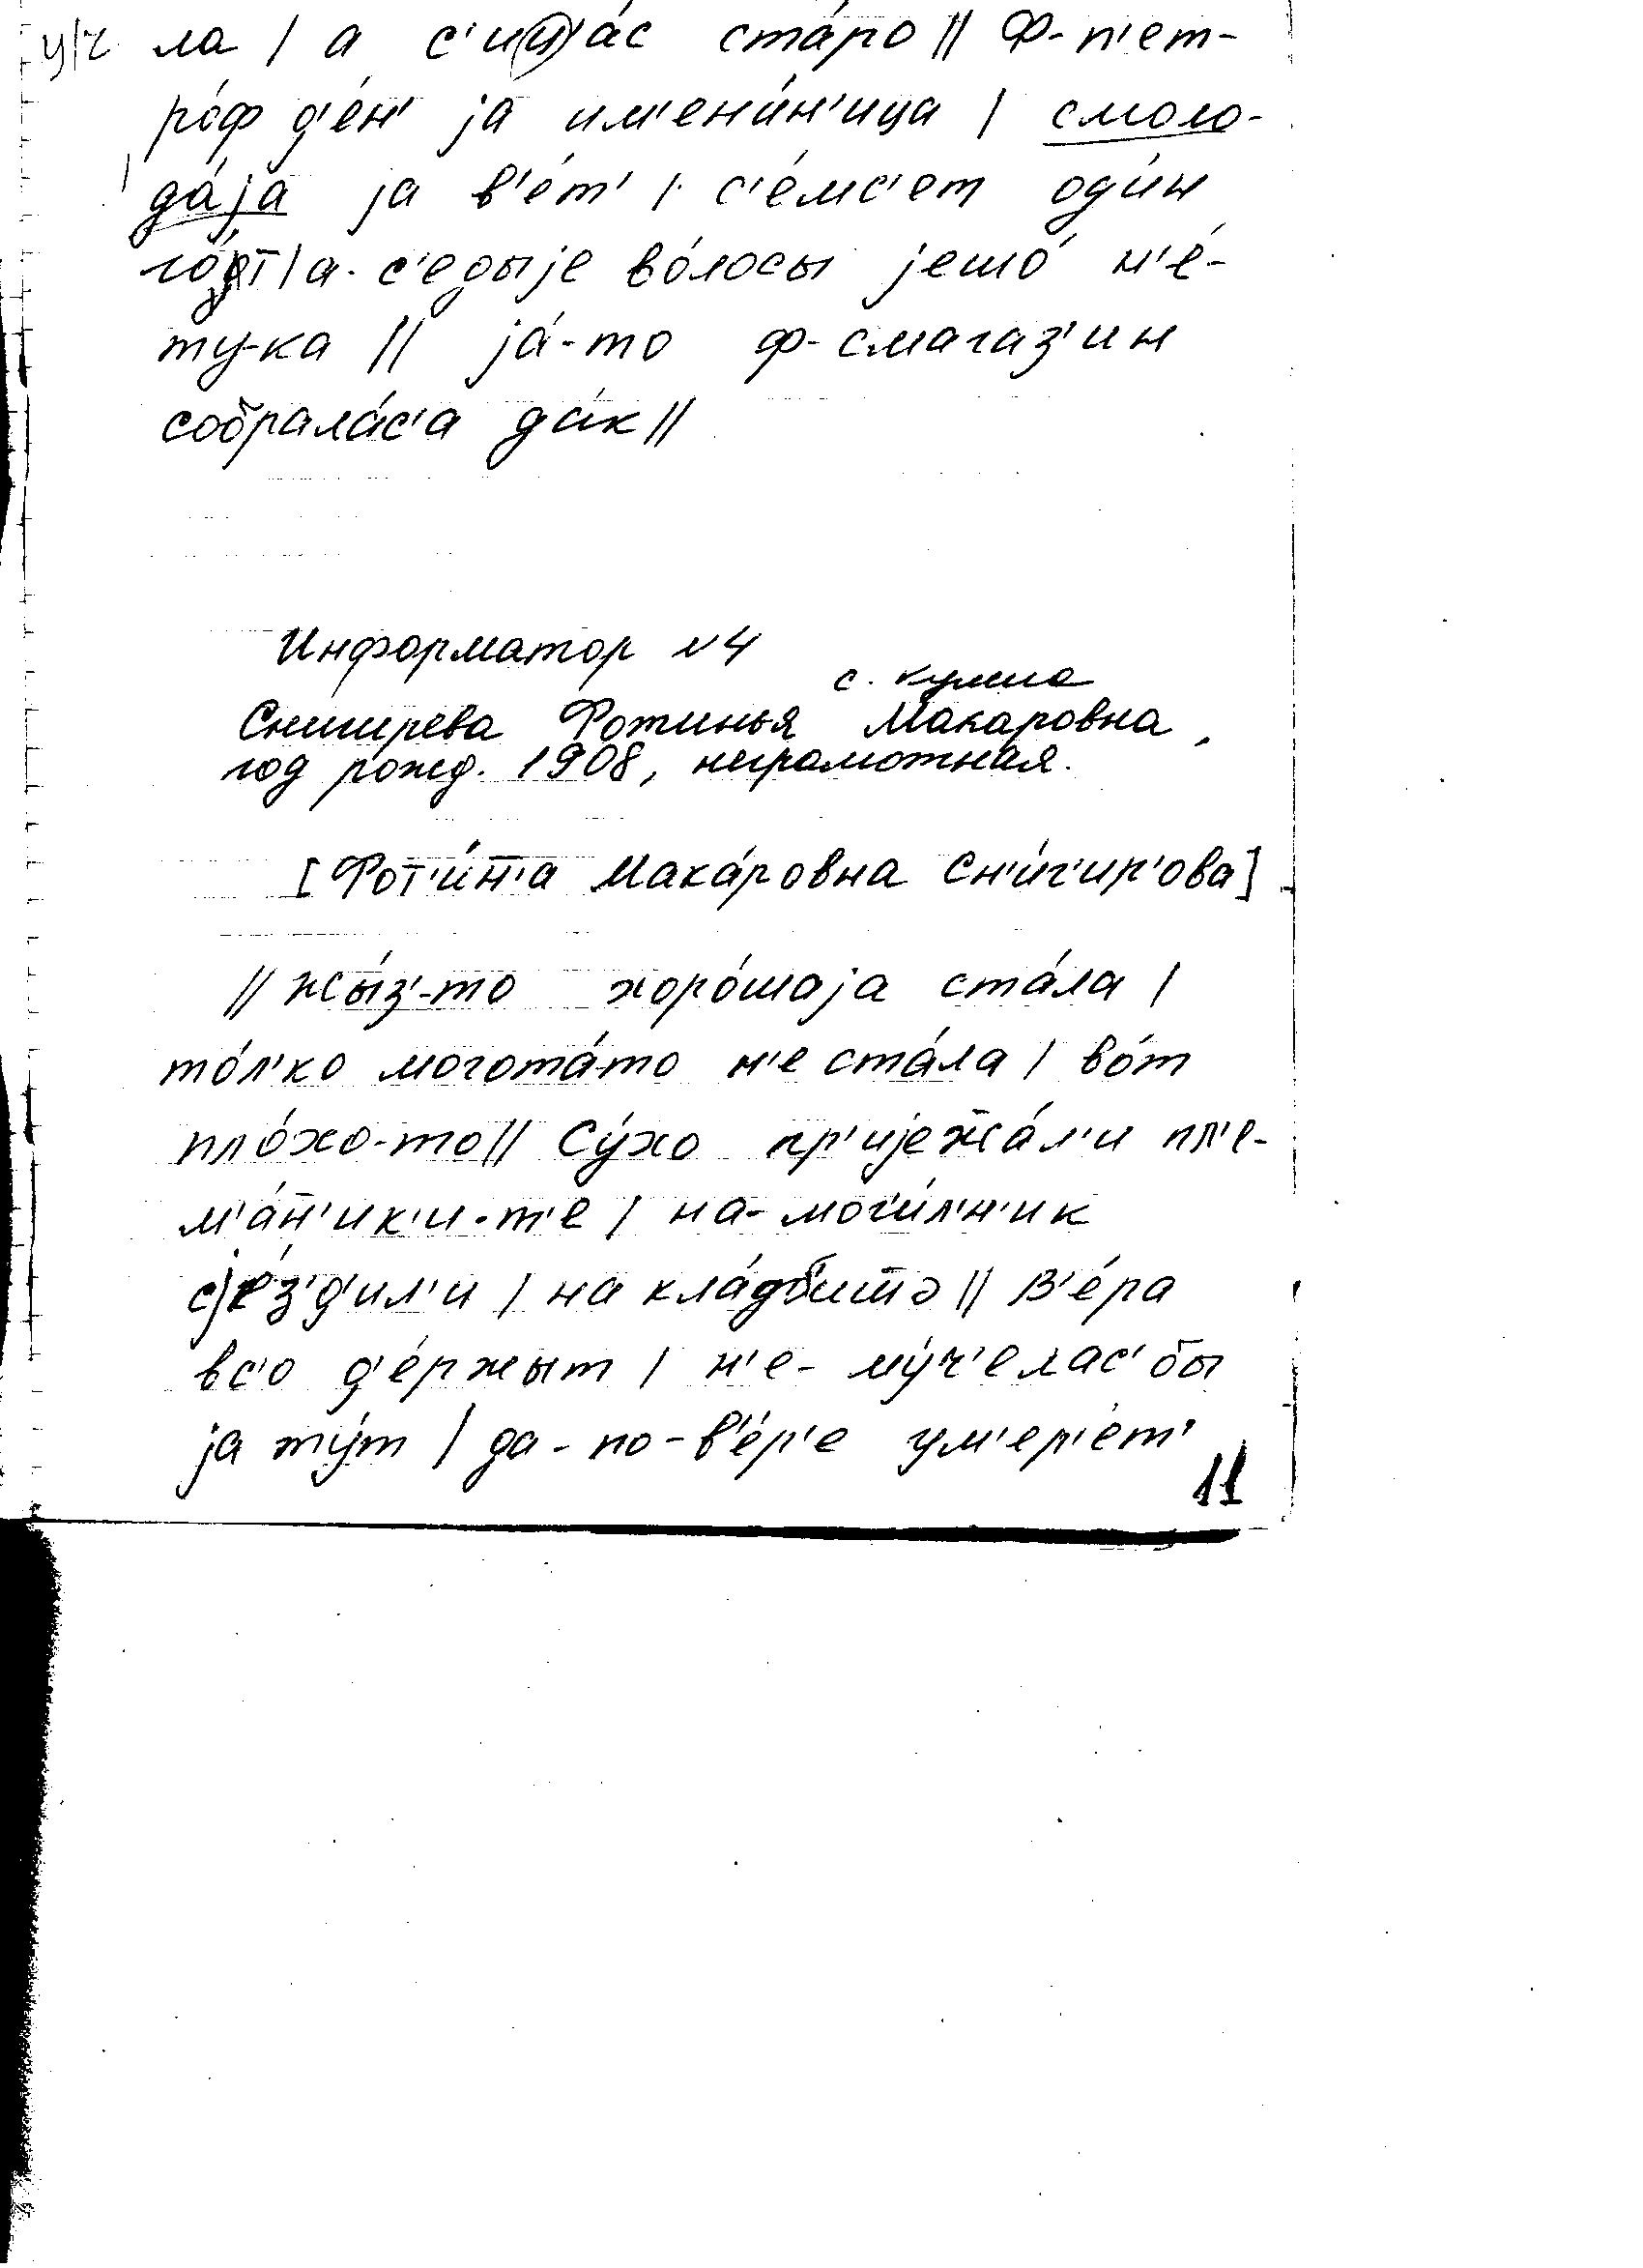 ц/ч ла | а с'и(ц)áс стáро || Ф-п'ет-
рóф д'éн' jа им'енúн'ица | смоло-
дáја jа в'éт' | с'éмс'ет одúн
гóт | а- с'едыје вóлосы јешó н'é-
ту-ка || já-то ф-смагаз'ин
собралáс'а дáк ||
Информатор №4
с. Кулига
Снигирева Фотинья Макаровна,
год рожд. 1908, неграмотная.
[Фот'úн̄'а Макáровна Сн'úг'ир'ова]
|| жы́з'-то хорóшаја стáла |
тóл'ко моготá-то н'е стáла | вóт
плóхо-то || Сýхо пр'ијеж̄áл'и пл'е-
м'áн̄'ик'и-т'е | на-могúл'н'ик
сјéз'д'ил'и | на клáдб'иш̄э || В'éра
вс'о д'éржыт | н'е- мýч'елас' бы
jа тýт | да- по- в'éр'е ум'ер'éт'
11